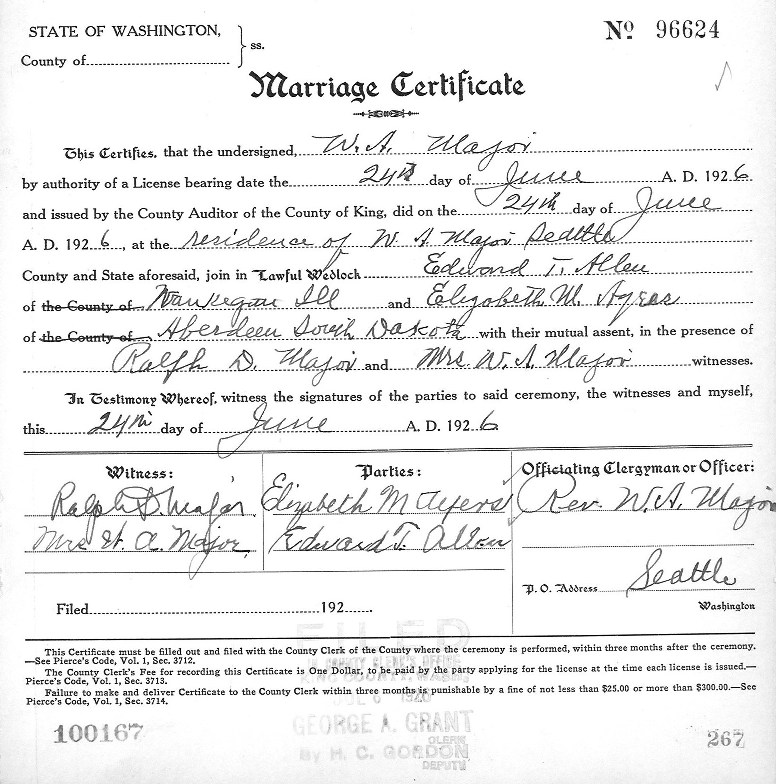 STATE OF WASHINGTON,
County of
ss.
No 96624
Marriage Certificate
This Certifies, that the undersigned, W. A. Major
by authority of a License bearing date the 24th day of June A. D. 1926
and issued by the County Auditor of the County of King, did on the 24th day of June
A. D. 1926, at the residence of W A Major Seattle
County and State aforesaid, join in Lawful Wedlock Edward T. Allen
of the County of Waukegan Ill and Elizabeth M. Ayers
of the County of Aberdeen South Dakota with their mutual assent, in the presence of
Ralph D. Major and Mrs. W. A. Major witnesses.
In Testimony Whereof, witness the signatures of the parties to said ceremony, the witnesses and myself,
this 24th day of June A. D. 1926
Witness:
Ralph D. Major
Mrs W. A. Major
Parties:
Elizabeth M Ayers
Edward T. Allen
Officiating Clergyman or Officer:
Rev. W. A. Major
P. O. Address Seattle
Washington
Filed 192
This Certificate must be filled out and filed with the County Clerk of the County where the ceremony is performed, within three months after the ceremony.
—See Pierce's Code, Vol. 1, Sec. 3712.
The County Clerk's Fee for recording this Certificate is One Dollar, to be paid by the party applying for the license at the time each license is issued.—
Pierce's Code, Vol. 1, Sec. 3713.
Failure to make and deliver Certificate to the County Clerk within three months is punishable by a fine of not less than $25.00 or more than $300.00.—See
Pierce's Code, Vol. 1, Sec. 3714.
FILED
IN COUNTY CLERK'S OFFICE
KING COUNTY, WASH.
6 1926
GEORGE A. GRANT
CLERK
By H. C. GORDON
DEPUTY
100167
267